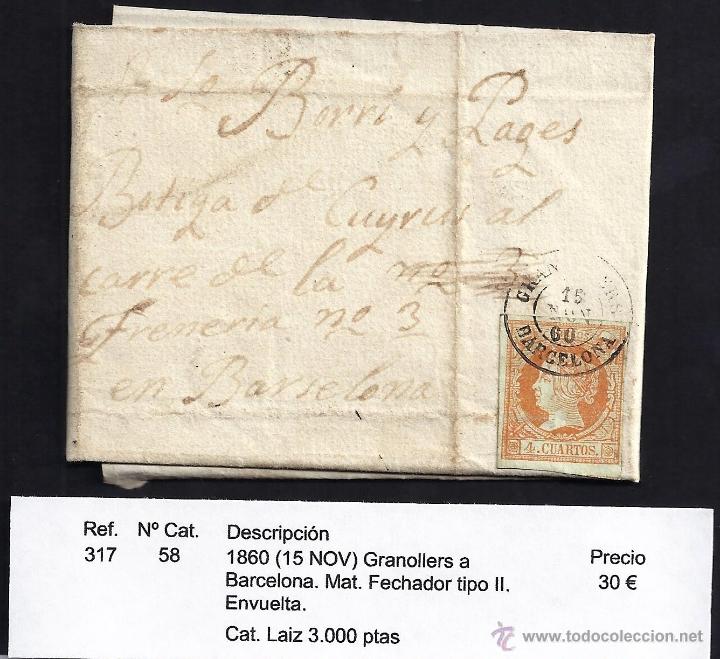 Borri y Pages
Botiga de Cuyrus al
carre de la nº 3
Freneria nº 3
en Barselona
15
NOV
60
BARCELONA
4. CUARTOS.
Ref. Nº Cat. Descripción
317 58 1860 (15 NOV) Granollers a Precio
Barcelona. Mat. Fechador tipo II. 30 €
Envuelta.
Cat. Laiz 3.000 ptas
www.todocoleccion.net